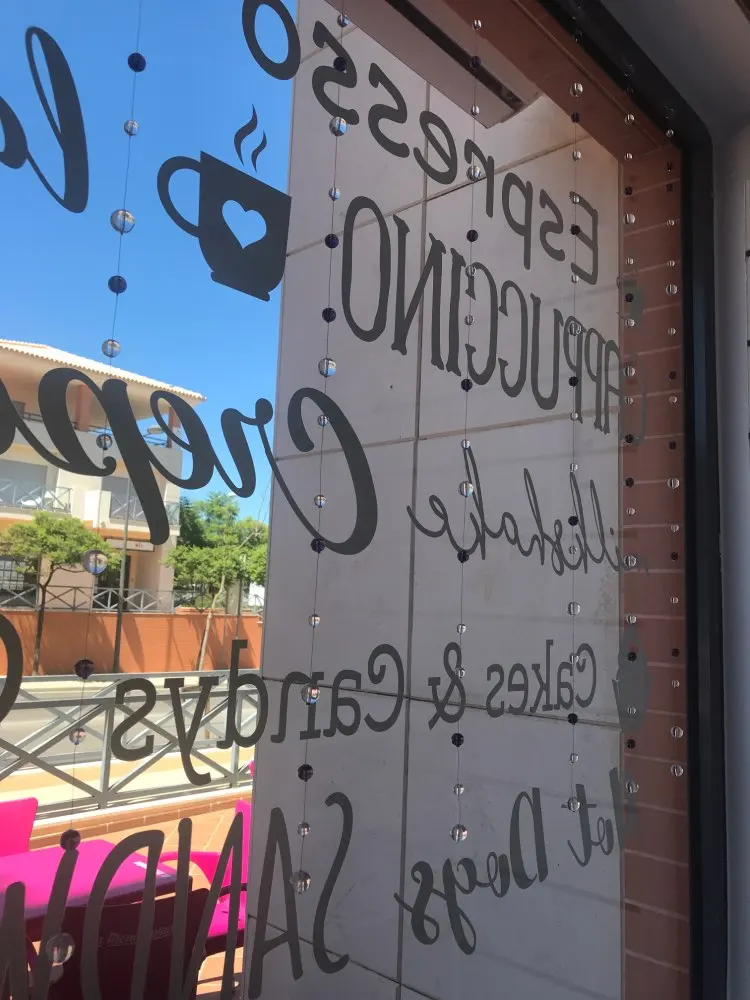 Espresso
CAPPUCCINO
Crepe
Milkshake
Cakes & Candys
Hot Dogs
SANDW